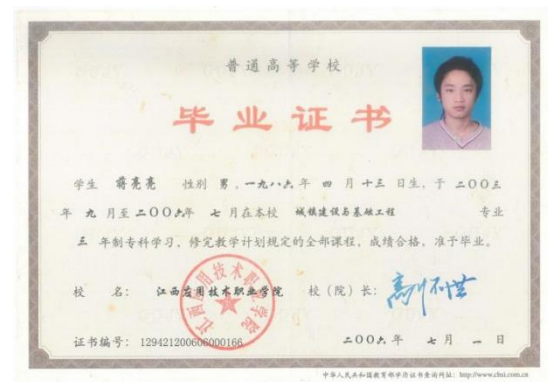 普通高等学校
毕业证书
学生 蒋亮亮 性别 男，一九八六年 四 月 十三 日生，于 二〇〇三
年 九 月至 二〇〇六年 七 月在本校 城镇建设与基础工程 专业
三 年制专科学习，修完教学计划规定的全部课程，成绩合格，准予毕业。
校 名： 江西应用技术职业学院 校（院）长：
江西应用技术职业学院
证书编号： 129421200606000166 二〇〇六年 七 月 一 日
中华人民共和国教育部学历证书查询网址：http://www.chsi.com.cn